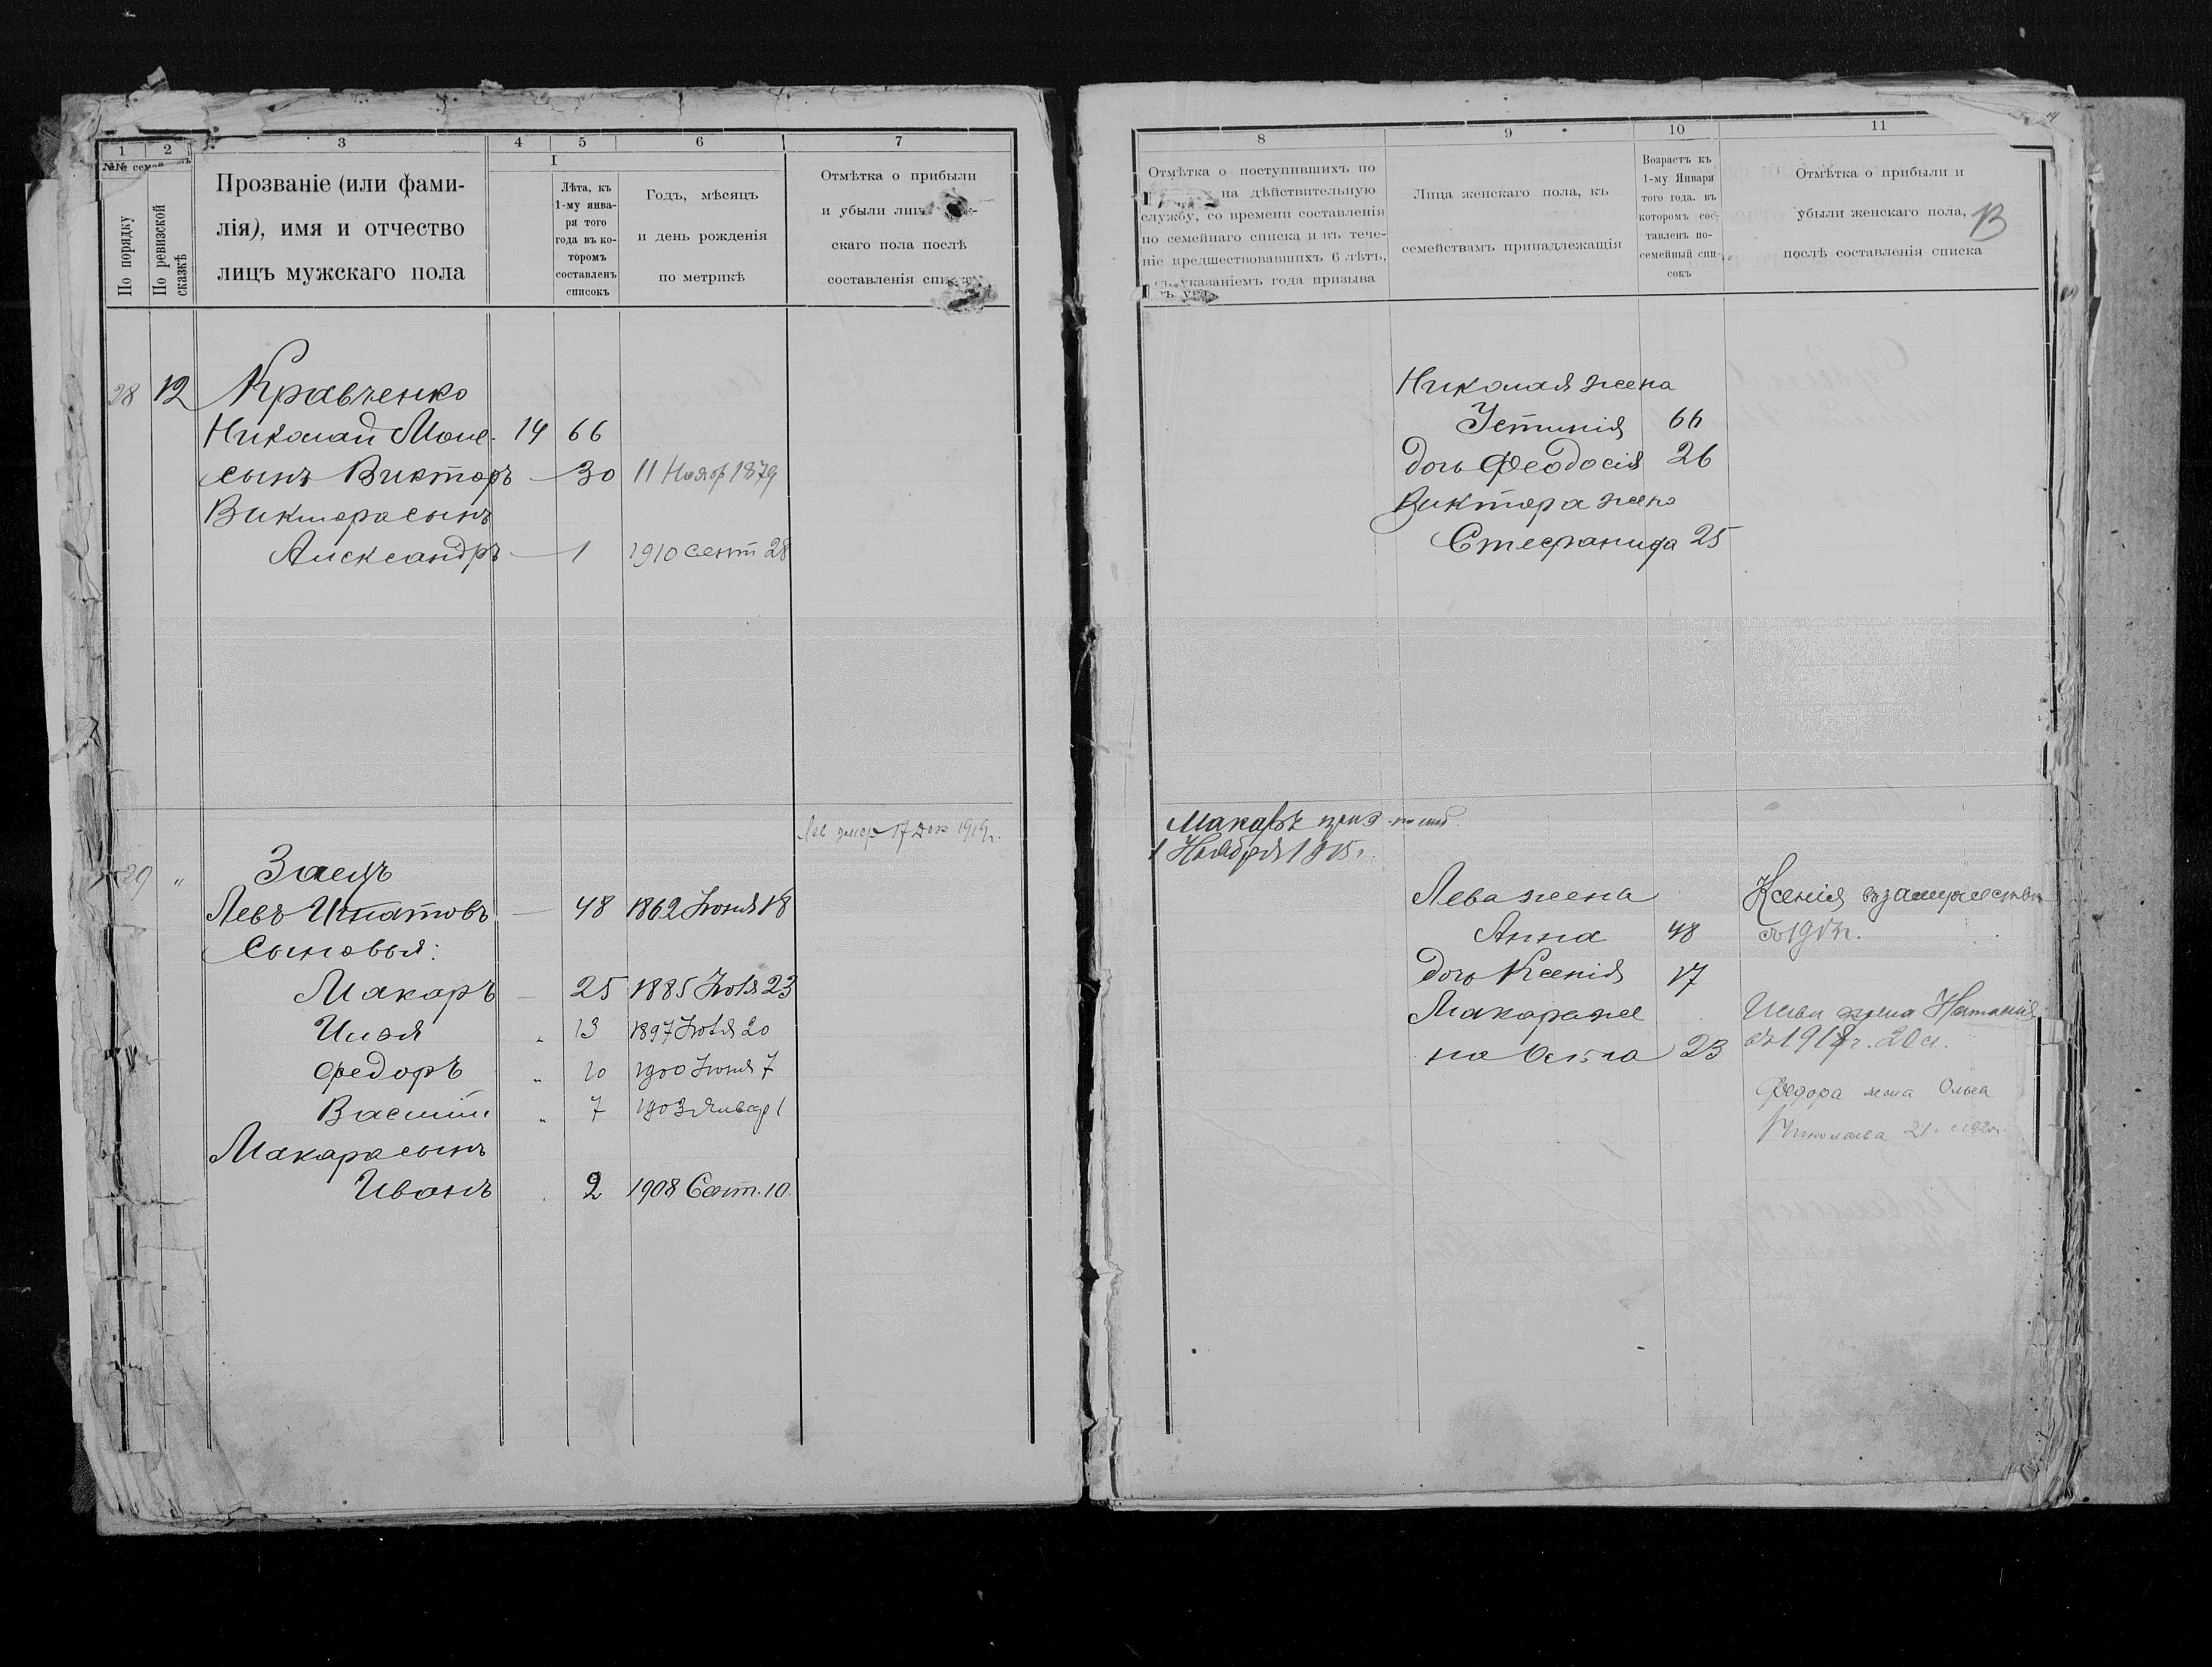 1 2 3 4 5 6 7
№№
По порядку
По ревизской сказкѣ
Прозваніе (или фами-
лія), имя и отчество
лицъ мужскаго пола
I
Лѣта, къ
1-му янва-
ря того
года въ ко-
торомъ
составленъ
списокъ
Годъ, мѣсяцъ
и день рожденія
по метрикѣ
Отмѣтка о прибыли
и убыли
скаго пола послѣ
составленія
28 12 Кравченко
Николай 14 66
сынъ Викторъ — 30 11 Нояб 1879
Виктора сынъ
Александръ — 1 1910 сент 28
17 Дек 1919г.
29 „ Заецъ
Левъ Игнатовъ — 48 1862 Іюня 18
Сыновья:
Макаръ — 25 1885 Іюля 23
Илья „ 13 1897 Іюля 20
Федоръ „ 10 1900 Іюня 7
Василій „ 7 1903 Январ 1
Макара сынъ
Иванъ 2 1908 Сент. 10.
8 9 10 11
Отмѣтка о поступившихъ по
на дѣйствительную
службу, со времени составленія
по семейнаго списка и въ тече-
ніе предшествовавшихъ 6 лѣтъ,
съ указаніемъ года призыва
Лица женскаго пола, къ
семействамъ принадлежащія
Возрастъ къ
1-му Января
того года. въ
которомъ сос-
тавленъ по-
семейный спи-
сокъ
Отмѣтка о прибыли и
убыли женскаго пола,
послѣ составленія списка
13
Николая жена
Устинія 66
дочь Феодосія 26
Виктора жена
Стефанида 25
Макаръ
1 Ноября
Лева жена
Анна 48
дочь Ксенія 17
Макара же
на 23
Ксенія въ замужествѣ
Ильи жена Наталія
20 л.
Федора жена Ольга
Николаева 21